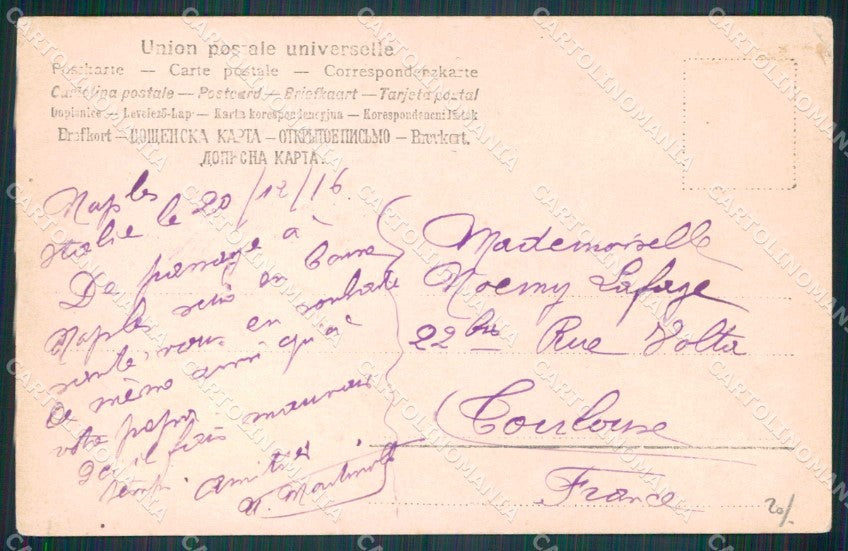 Union postale universelle
Postkarte — Carte postale — Correspondenzkarte
Cartolina postale — Postcard — Briefkaart — Tarjeta postal
Dopisnice — Levelező-Lap — Karta korespondencyjna — Korespondenční lístek
Brefkort — ПОЩЕНСКА КАРТА — ОТКРЫТОЕ ПИСЬМО — Brevkort.
ДОПИСНА КАРТА.
Naples
Italie le 20/12/16
De passage à
Naples suis en bonne
santé, vous en souhaite
de même ainsi qu'à
votre papa.
Ici il fait mauvais
temps Amitiés
Mademoiselle
Noemy Lafage
22 bis Rue Volta
Toulouse
France
20/-
CARTOLINOMANIA